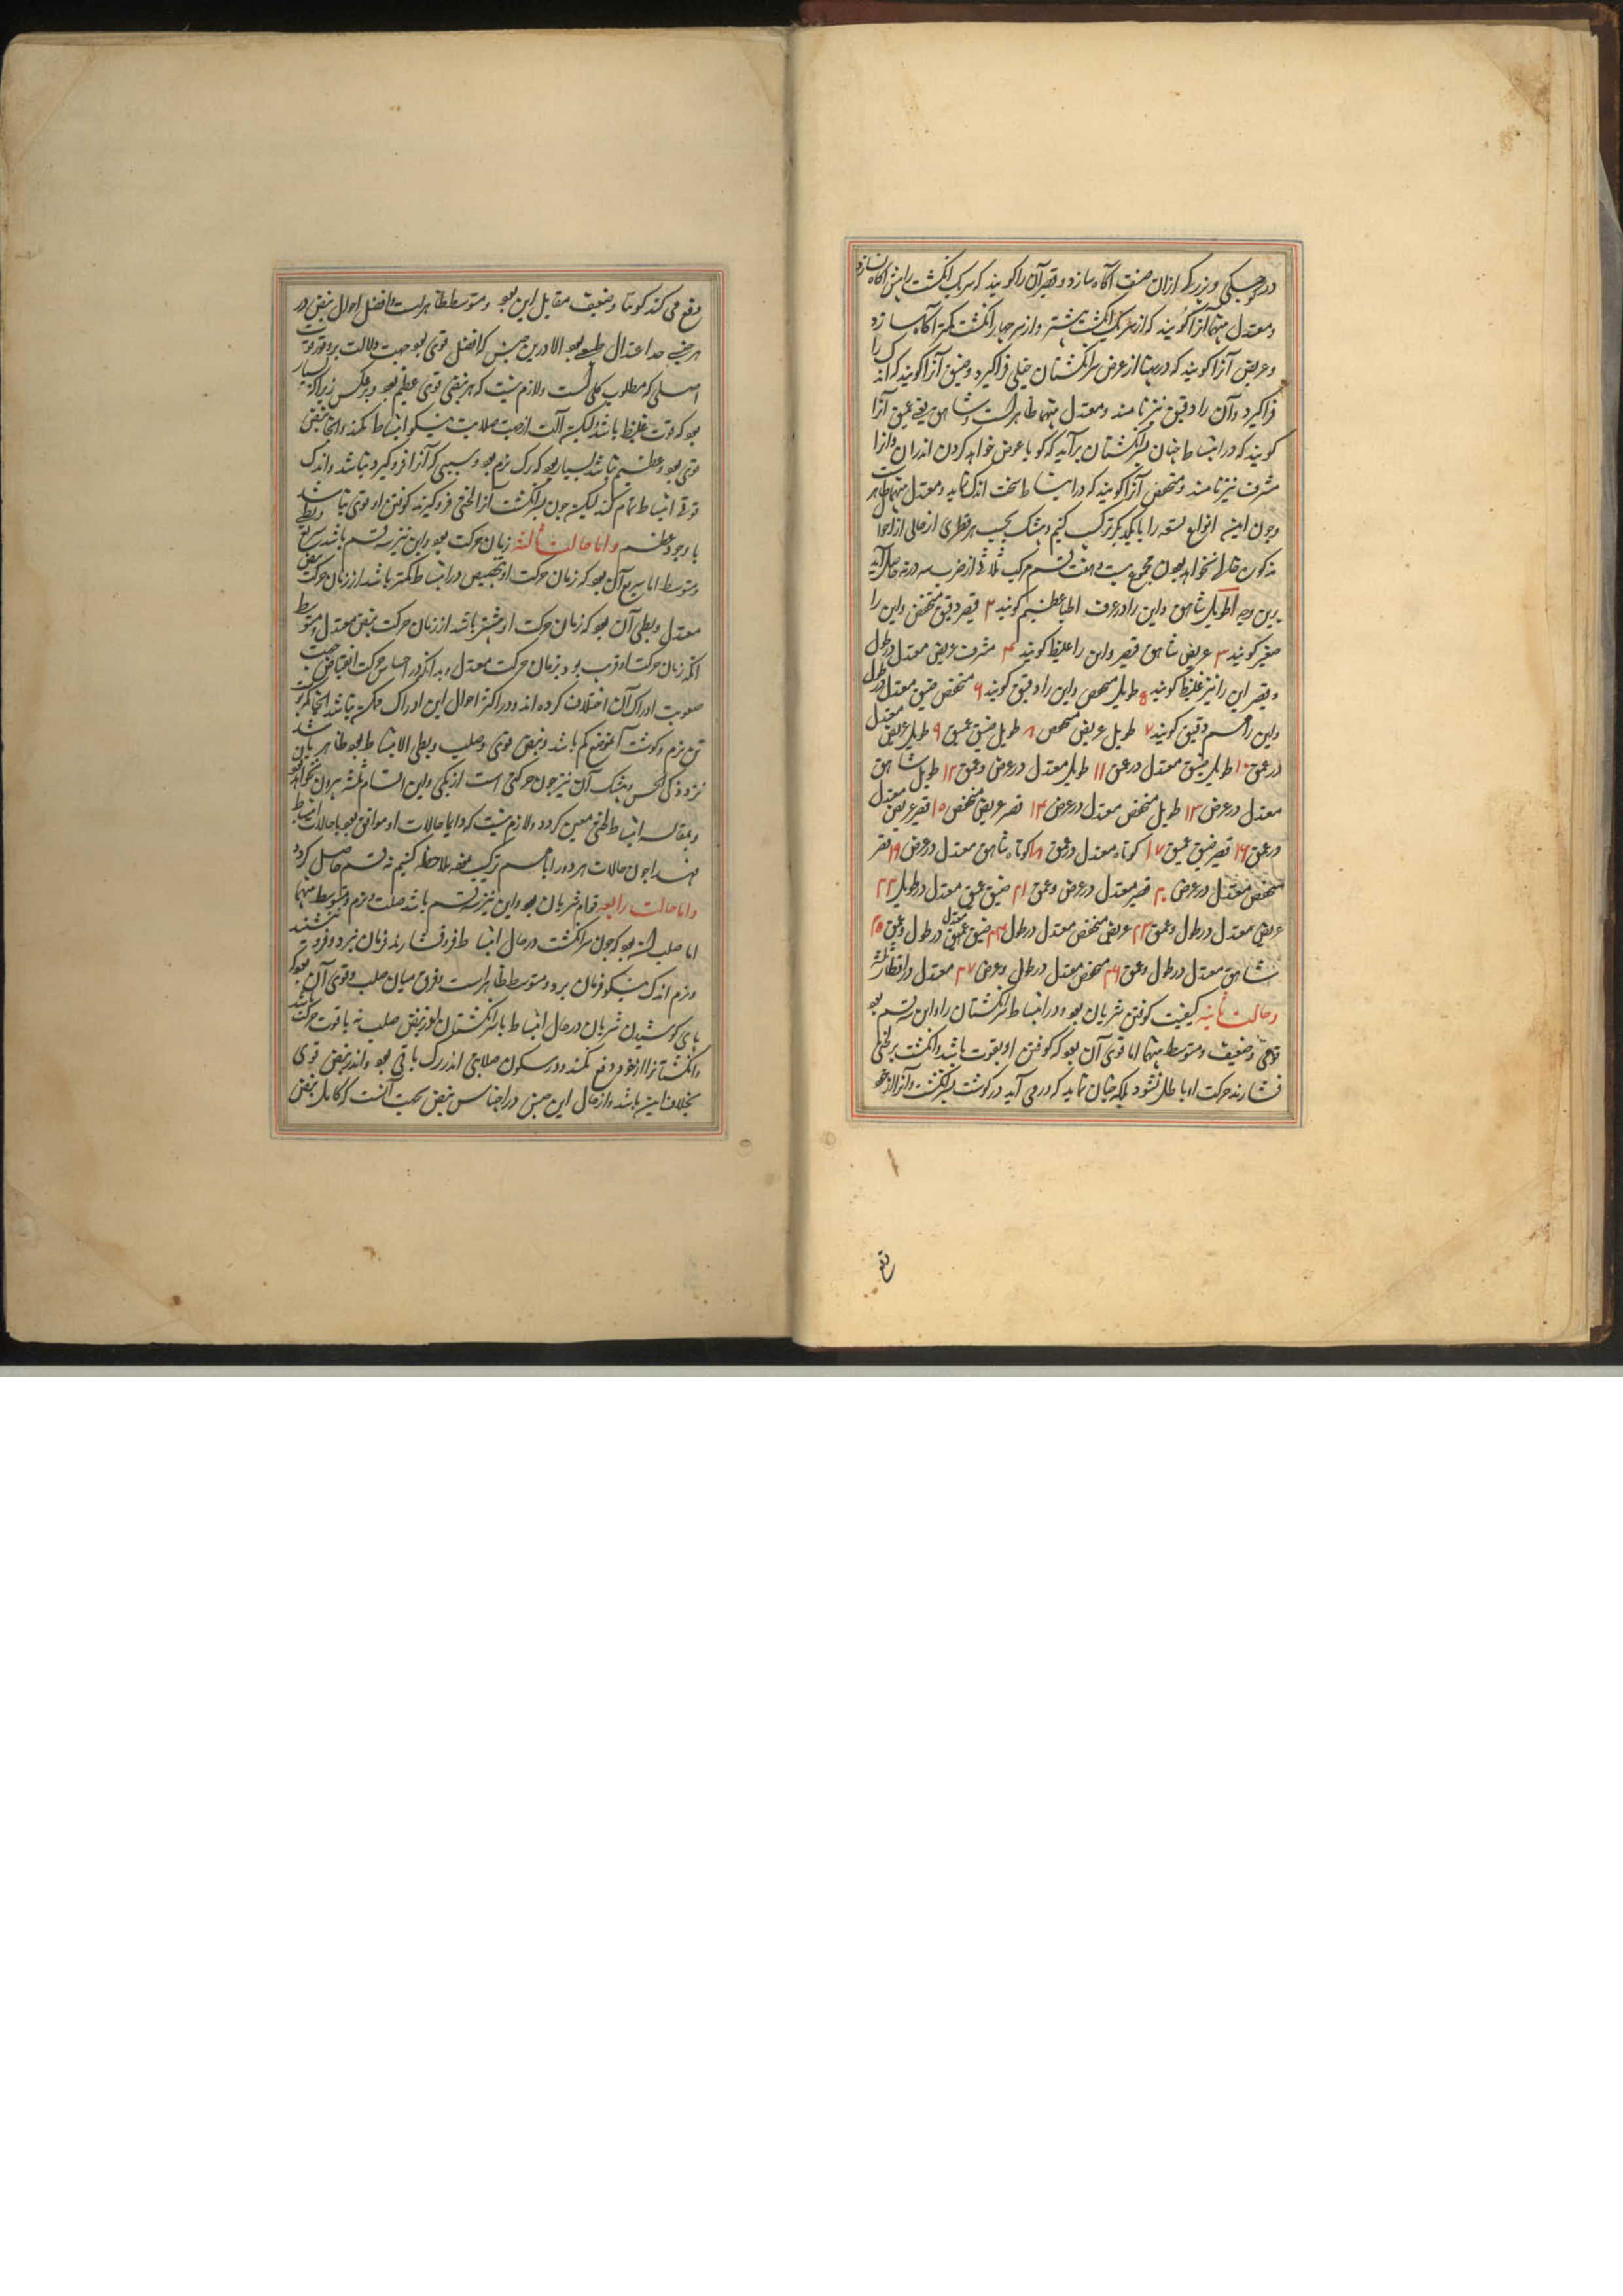 در کوچکی و بزرگی ازان صنف آگاه سازد و قصیر آن را گویند که سر یک انگشت را بیش آگاه نسازد
و معتدل منهما آنرا گویند که از سر یک انگشت بیشتر و از سر چهار انگشت کمتر آگاه سازد
و عریض آنرا گویند که در پهنا از عرض سر انگشتان خیلی فراگیرد و ضیق آنرا گویند که اندک را
فراگیرد و آن را دقیق نیز نامند و معتدل منهما ظاهر است و شاهق یعنی عمیق آنرا
گویند که در انبساط چنان بسر انگشتان برآید که گویا غوص خواهد کردن اندران و آنرا
مشرف نیز نامند و منخفض آنرا گویند که در انبساط سخت اندک نماید و معتدل منهما ظاهر است
و چون این انواع تسعه را با یکدیگر ترکیب کنیم و بیشک بحسب هر قطری از حالی از احوال
مذکور خالی نخواهد بودن مجموع بیست و هفت قسم مرکب ثلاثی از ضرب سه در نه حاصل آید
برین وجه ا طویل شاهق و این را در عرف اطبا عظیم گویند ۲ قصیر دقیق منخفض و این را
صغیر گویند ۳ عریض شاهق قصیر و این را غلیظ گویند ۴ مشرف عریض معتدل در طول
و قصیر این را نیز غلیظ گویند ۵ طویل منخفض و این را دقیق گویند ۶ منخفض ضیق معتدل در طول
و این را هم دقیق گویند ۷ طویل عریض منخفض ۸ طویل ضیق عمیق ۹ طویل عریض معتدل
در عمق ۱۰ طویل ضیق معتدل در عمق ۱۱ طویل معتدل در عرض و عمق ۱۲ طویل شاهق
معتدل در عرض ۱۳ طویل منخفض معتدل در عرض ۱۴ قصیر عریض منخفض ۱۵ قصیر عریض معتدل
در عمق ۱۶ قصیر ضیق عمیق ۱۷ کوتاه معتدل در عمق ۱۸ کوتاه شاهق معتدل در عرض ۱۹ قصیر
منخفض معتدل در عرض ۲۰ قصیر معتدل در عرض و عمق ۲۱ ضیق عمیق معتدل در طول ۲۲
عریض معتدل در طول و عمق ۲۳ عریض منخفض معتدل در طول ۲۴ ضیق معتدل در طول و عمق ۲۵
شاهق معتدل در طول و عمق ۲۶ منخفض معتدل در طول و عرض ۲۷ معتدل در اقطار ثلثه
و حالت ثانیه کیفیت کوفتن شریان بود در انبساط سر انگشتان را و این سه قسم بود
قوی و ضعیف و متوسط منهما اما قوی آن بود که کوفتن او بقوت باشد و انگشت بر لختی
فشارند حرکت او باطل نشود بلکه چنان نماید که در می آید در گوشت سر انگشت و آنرا از خود
دفع
دفع می کند و ضعیف مقابل این بود و متوسط ظاهر است و افضل احوال نبض در
هر جنسی حد اعتدال طبیعی بود الا درین جنس که افضل قوی بود جهت دلالت بر وفور قوت
اصلی که مطلوب کلی است و لازم نیست که هر نبضی قوی عظیم بود و برعکس زیرا که بسیار
بود که قوت غلیظ باشد و لیکن آلت از جهت صلابت نیکو انبساط نکند و اینجا نبض
قوی بود و عظیم نباشد و بسیار بود که رگ نرم بود و سببی که آنرا فروگیرد نباشد و اندک
قوتی انبساط تمام کند لیکن چون سر انگشت آنرا لختی فروگیرند کوفتن او قوی نباشد
با وجود عظم و اما حالت ثالثه زمان حرکت بود و این نیز سه قسم باشد سریع و بطی
و متوسط اما سریع آن بود که زمان حرکت او بتخصیص در انبساط کمتر باشد از زمان حرکت نبض
معتدل و بطی آن بود که زمان حرکت او بیشتر باشد از زمان حرکت نبض معتدل و متوسط
آنکه زمان حرکت او قریب بود بزمان حرکت معتدل و بدانکه در احساس حرکت انقباض جهت
صعوبت ادراک آن اختلاف کرده اند و در اکثر احوال این ادراک ممکن نباشد
نرم و گوشت آن موضع کم باشد و نبض قوی و صلب و بطی الانبساط بود ظاهر باشد
نزد ذکی الحس و بیشک آن نیز چون حرکتی است از یکی و این اقسام ثلثه بیرون نخواهد بود
و بمقایسه انبساط ظنی معین گردد و لازم نیست که دایما حالات او موافق بود با حالات انبساط
پس چون حالات هر دو را با هم ترکیب نموده ملاحظه کنیم نه قسم حاصل گردد
و اما حالت رابعه قوام شریان بود و این نیز سه قسم باشد صلب و نرم و متوسط منهما
اما صلب آن بود که چون سر انگشت در حال انبساط فرو فشارند فرمان نبرد و فرو ننشیند
و نرم اندک نیکو فرمان برد و متوسط ظاهر است و فرق میان صلب و قوی آن بود که
کوشیدن شریان در حال انبساط با سر انگشتان در نبض صلب نه با قوت حرکت باشد
و انگشتانرا از خود دفع نکند و در سکون صلابتی اندر رگ باقی بود و اندر نبض قوی
بخلاف این باشد و از حال این جنس در اجناس نبض صحیت آنست که کامل نبض